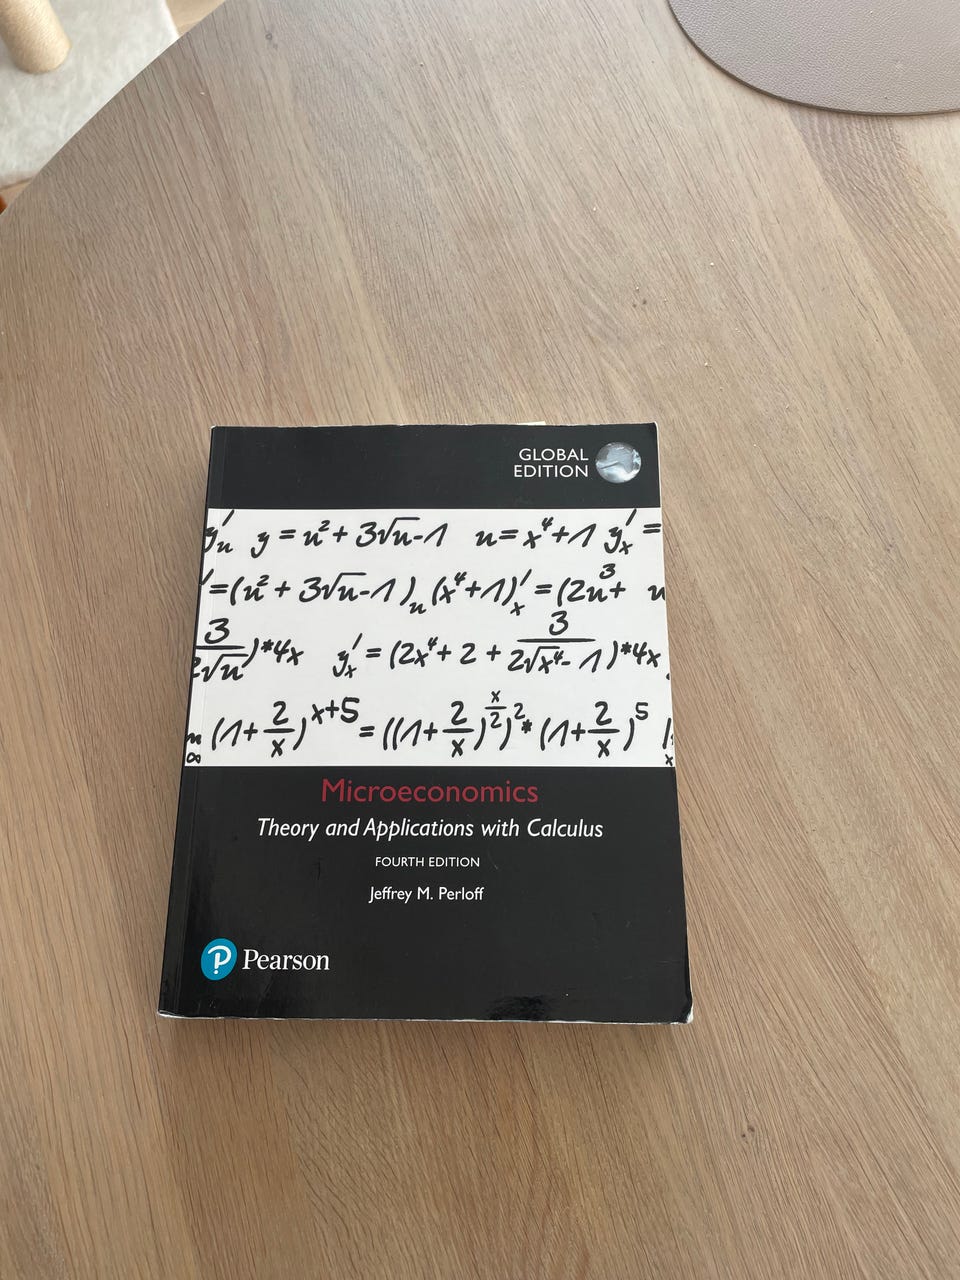 GLOBAL
EDITION
y'u y = u² + 3√u - 1 u = x⁴ + 1 y'x =
' = (u² + 3√u - 1)u (x⁴ + 1)'x = (2u + 3 u
3/2√u) * 4x y'x = (2x⁴ + 2 + 3/2√x⁴ - 1) * 4x
∞ (1 + 2/x)^x+5 = ((1 + 2/x)^x/2)² * (1 + 2/x)⁵
Microeconomics
Theory and Applications with Calculus
FOURTH EDITION
Jeffrey M. Perloff
Pearson